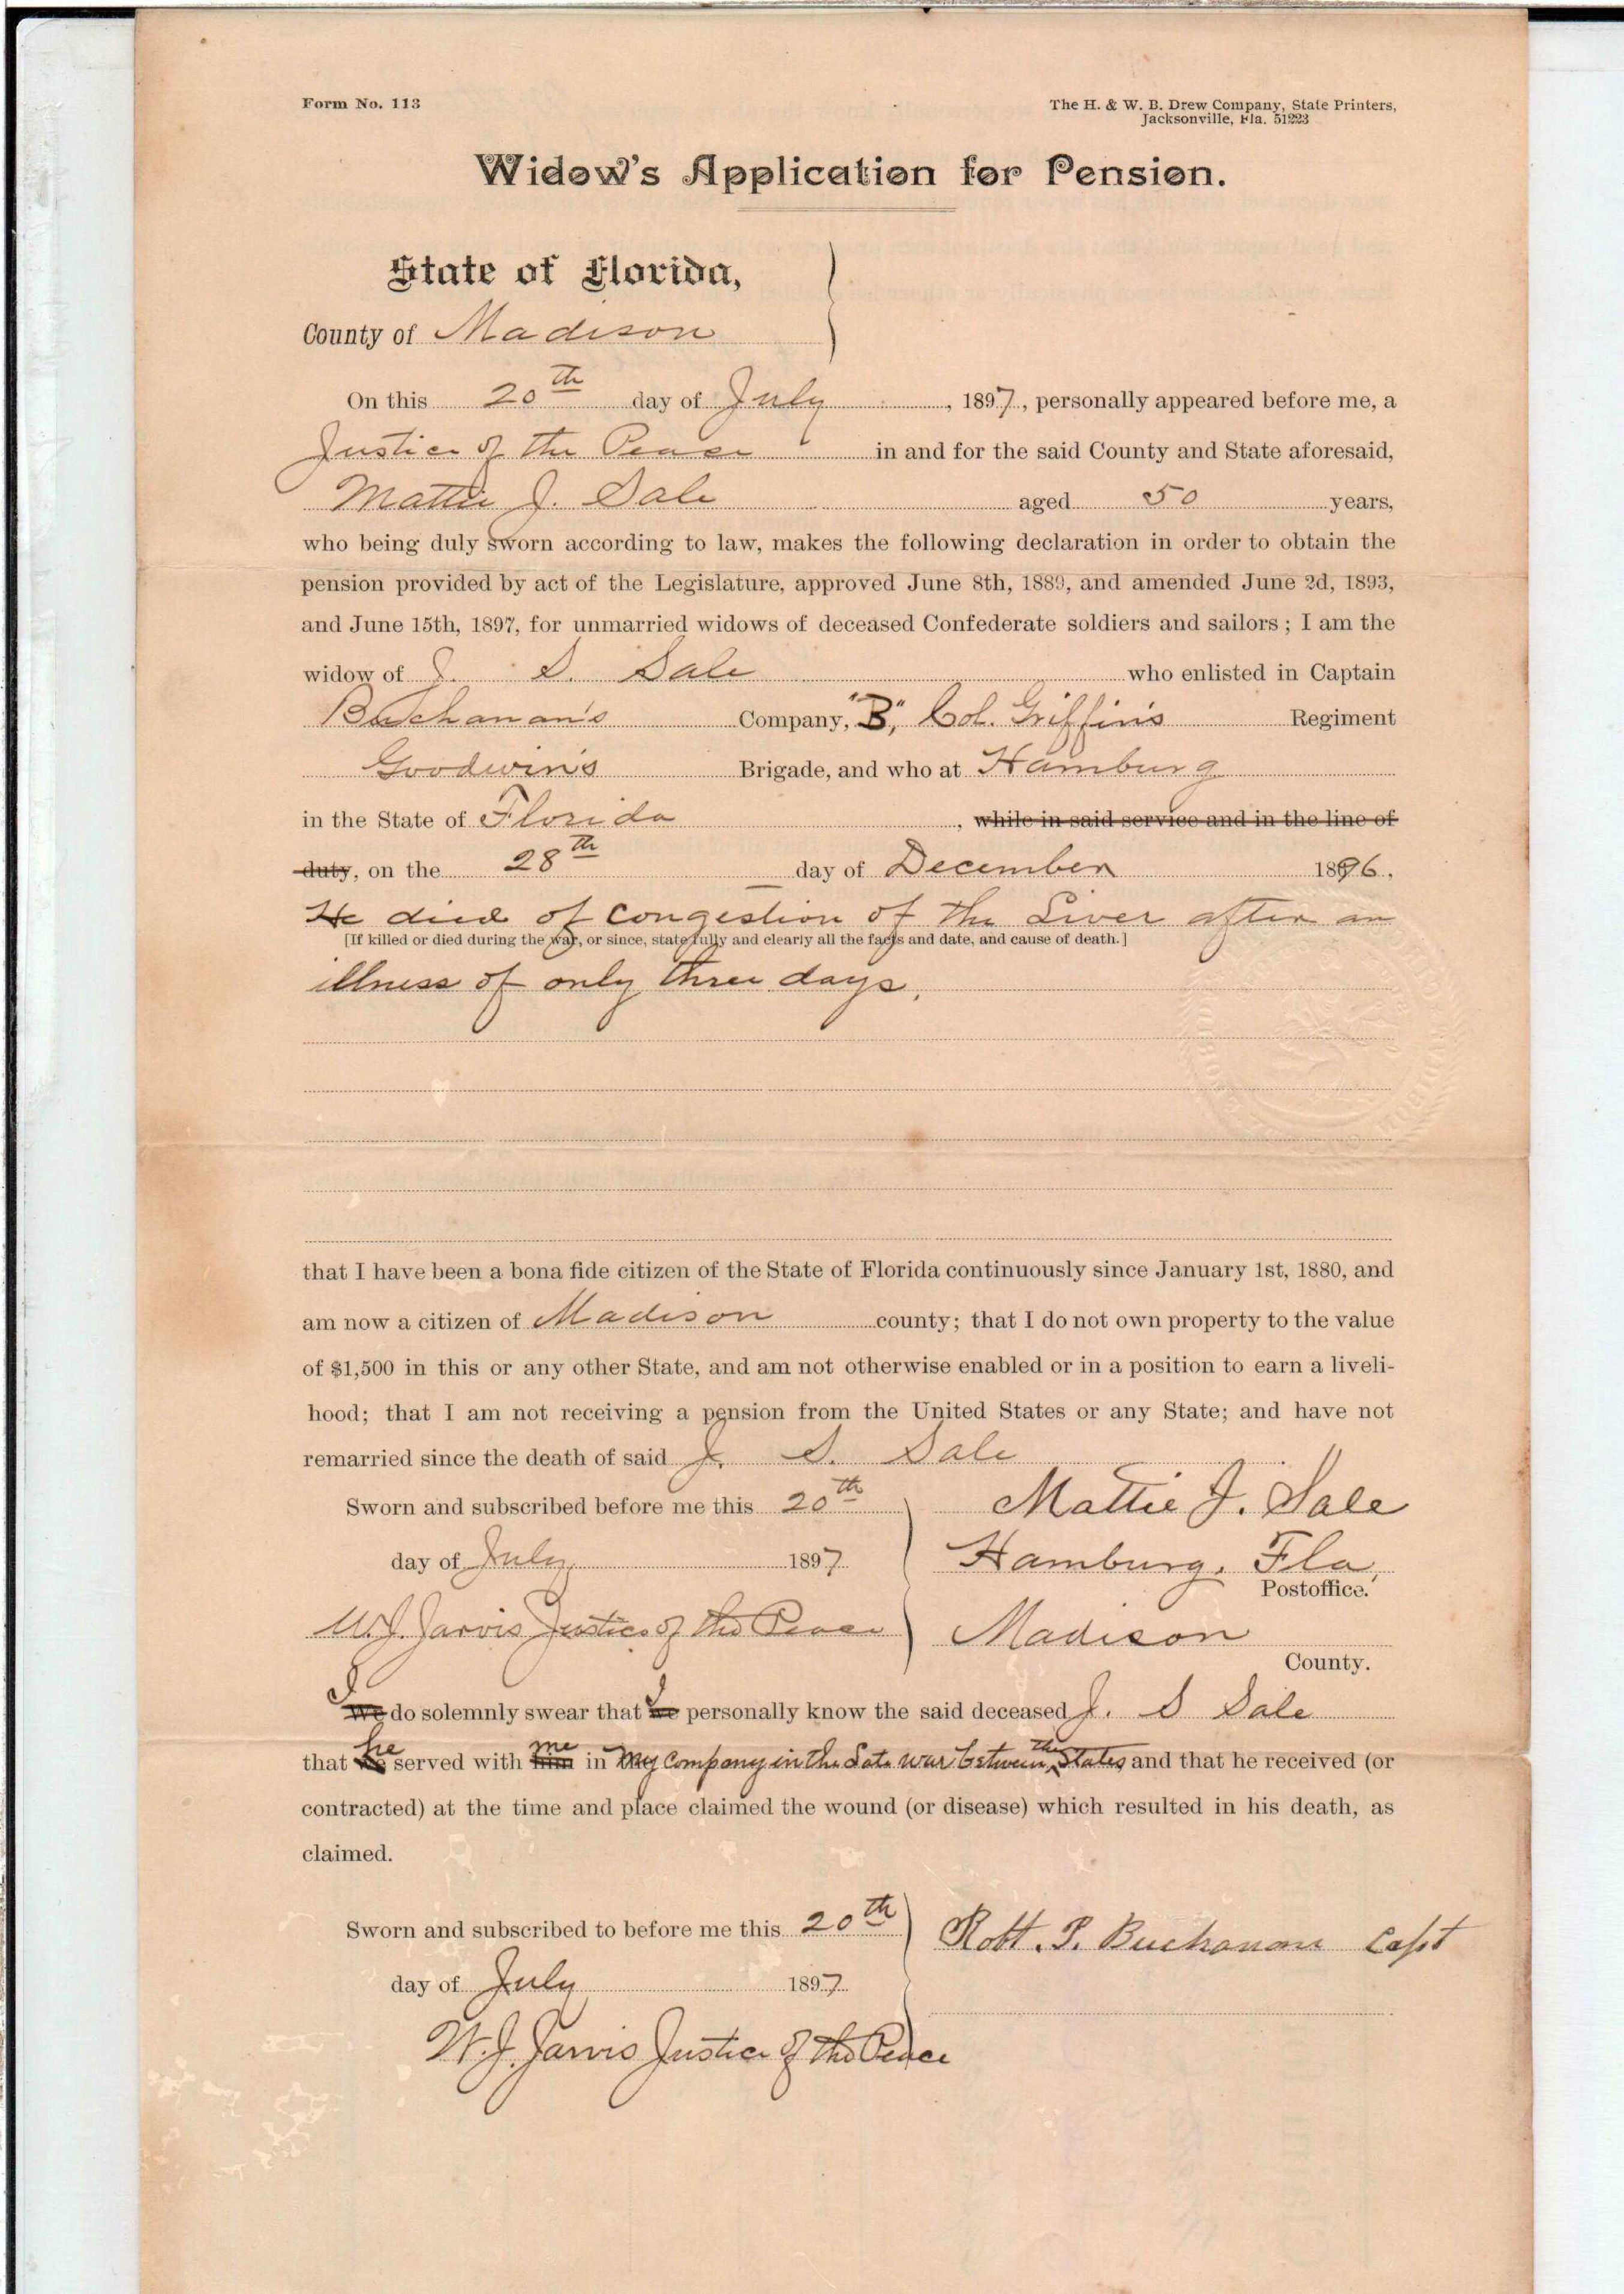 Form No. 113
The H. & W. B. Drew Company, State Printers,
Jacksonville, Fla. 51223
Widow's Application for Pension.
State of Florida,
County of Madison
On this 20th day of July, 1897, personally appeared before me, a
Justice of the Peace in and for the said County and State aforesaid,
Mattie J. Sale aged 50 years,
who being duly sworn according to law, makes the following declaration in order to obtain the
pension provided by act of the Legislature, approved June 8th, 1889, and amended June 2d, 1893,
and June 15th, 1897, for unmarried widows of deceased Confederate soldiers and sailors; I am the
widow of J. S. Sale who enlisted in Captain
Buchanan's Company, "B", Col. Griffin's Regiment
Goodwin's Brigade, and who at Hamburg
in the State of Florida, while in said service and in the line of
duty, on the 28th day of December 1896.
He died of congestion of the Liver after an
[If killed or died during the war, or since, state fully and clearly all the facts and date, and cause of death.]
illness of only three days.
that I have been a bona fide citizen of the State of Florida continuously since January 1st, 1880, and
am now a citizen of Madison county; that I do not own property to the value
of $1,500 in this or any other State, and am not otherwise enabled or in a position to earn a liveli-
hood; that I am not receiving a pension from the United States or any State; and have not
remarried since the death of said J. S. Sale
Sworn and subscribed before me this 20th
day of July 1897
W. J. Jarvis Justice of the Peace
Mattie J. Sale
Hamburg, Fla,
Postoffice.
Madison
County.
I We do solemnly swear that I we personally know the said deceased J. S Sale
that he served with me him in my Company in the Late war between the States and that he received (or
contracted) at the time and place claimed the wound (or disease) which resulted in his death, as
claimed.
Sworn and subscribed to before me this 20th
day of July 1897
W. J. Jarvis Justice of the Peace
Robt. P. Buchanan Capt